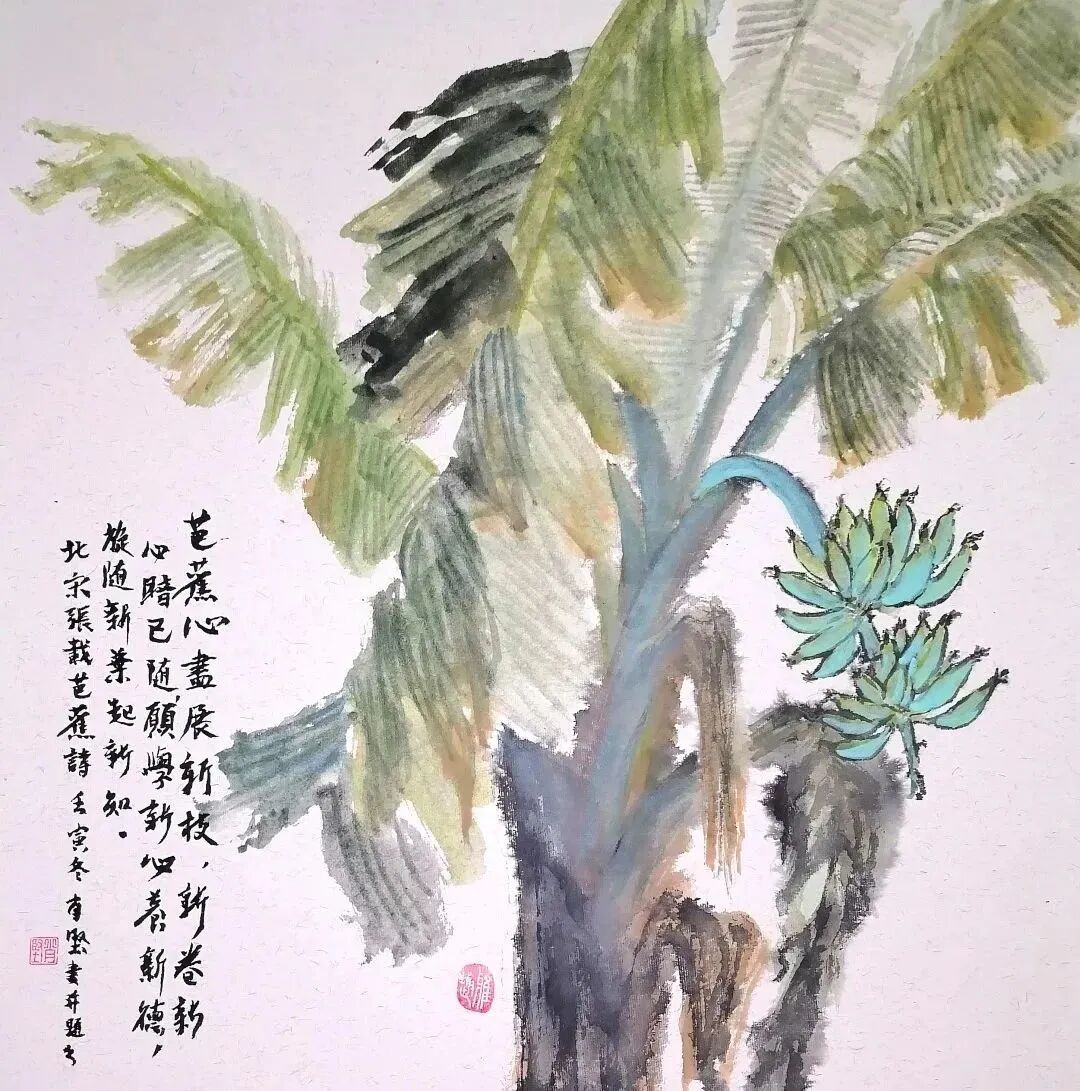 芭蕉心盡展新枝，新卷新
心暗已随願學新心養新德，
旋随新葉起新知。
北宋張載芭蕉詩 壬寅冬 堅書并題
雅趣